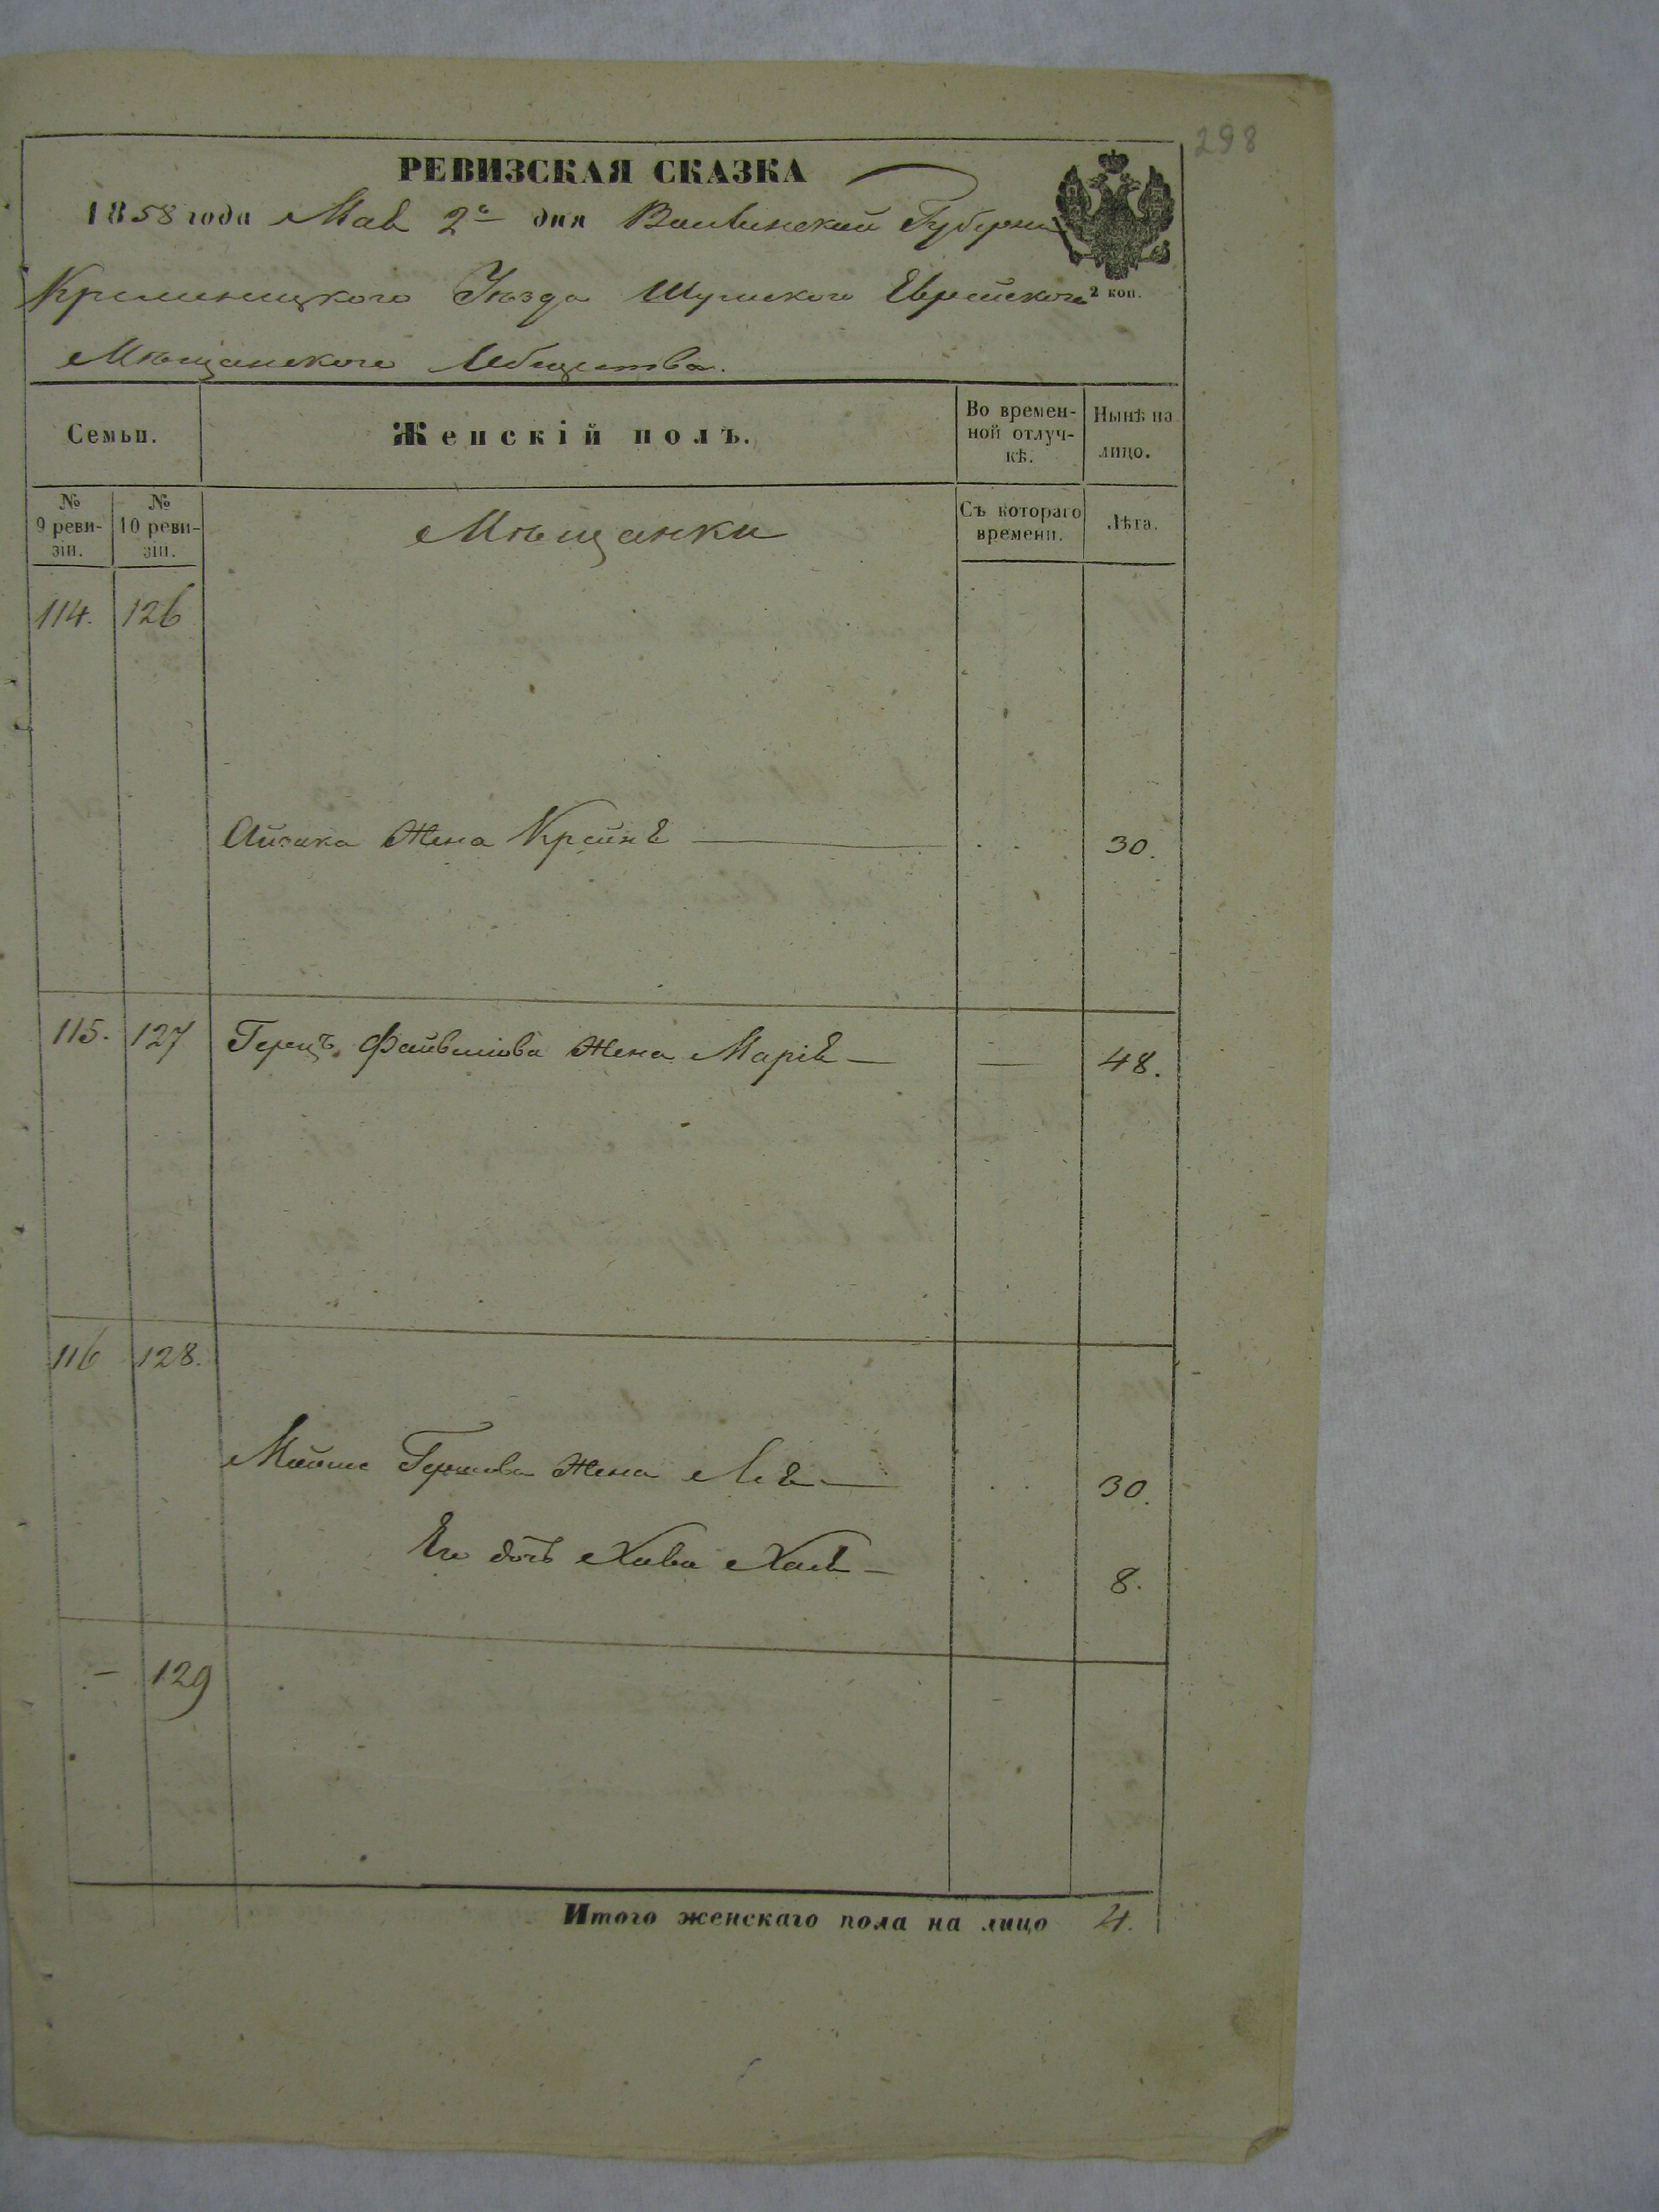 298
РЕВИЗСКАЯ СКАЗКА
1858 года Мая 2го дня Волынской Губерніи
Кременецкого Уѣзда Шумского Еврейского 2 коп.
Мѣщанского Общества.
Семьи. Женскій полъ. Во времен-ной отлуч-кѣ. Нынѣ на лицо.
№ 9 реви-зіи. № 10 реви-зіи. Мѣщанки Съ котораго времени. Лѣта.
114. 126
Айзика Жена Крейня 30.
115. 127 Герцъ Файвишова Жена Марія — — 48.
116 128.
Мойше Гершова Жена Лея — 30.
Его дочь Хава Хая — 8.
— 129
Итого женскаго пола на лицо 4.